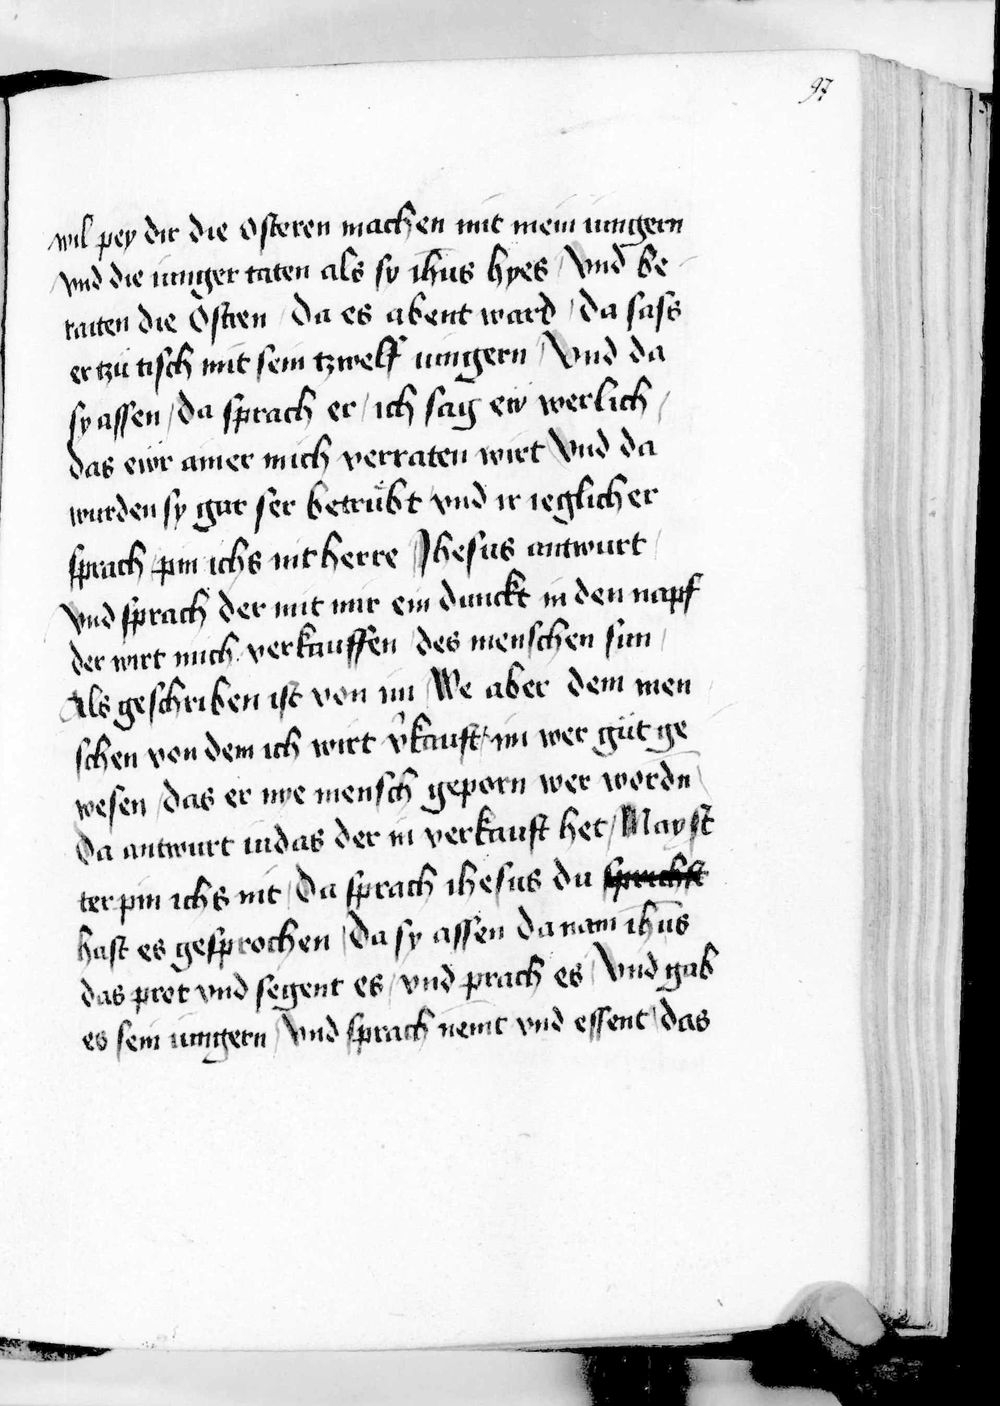 97
wil pey dir die osteren machen mit mein iungern
vnd die iunger taten als sy ihūs hyes / Vnd be
raiten die Ostren / Da es abent ward / da sass
er tzü tisch mit sein tzwelf iungern / Vnd da
sy assen / da sprach er / ich sag ew werlich /
das ewr ainer mich verraten wirt Vnd da
wurden sy gar ser betrübt vnd ir ieglicher
sprach / pin ichs nit herre Jhesus antwurt /
Vnd sprach der mit mir ein dunckt in den napf
der wirt mich verkauffen / des menschen sun /
Als geschriben ist von im / We aber dem men
schen von dem ich wirt v̄kauft / im wer güt ge
wesen / das er nye mensch geporn wer wordn /
Da antwurt iudas der in verkauft het / Mayst
ter pin ichs nit / Da sprach ihesus du sprichst
hast es gesprochen / Da sy assen da nam ihūs
das prot vnd segent es / vnd prach es / Vnd gab
es sein iungern / Vnd sprach nemt vnd essent / das